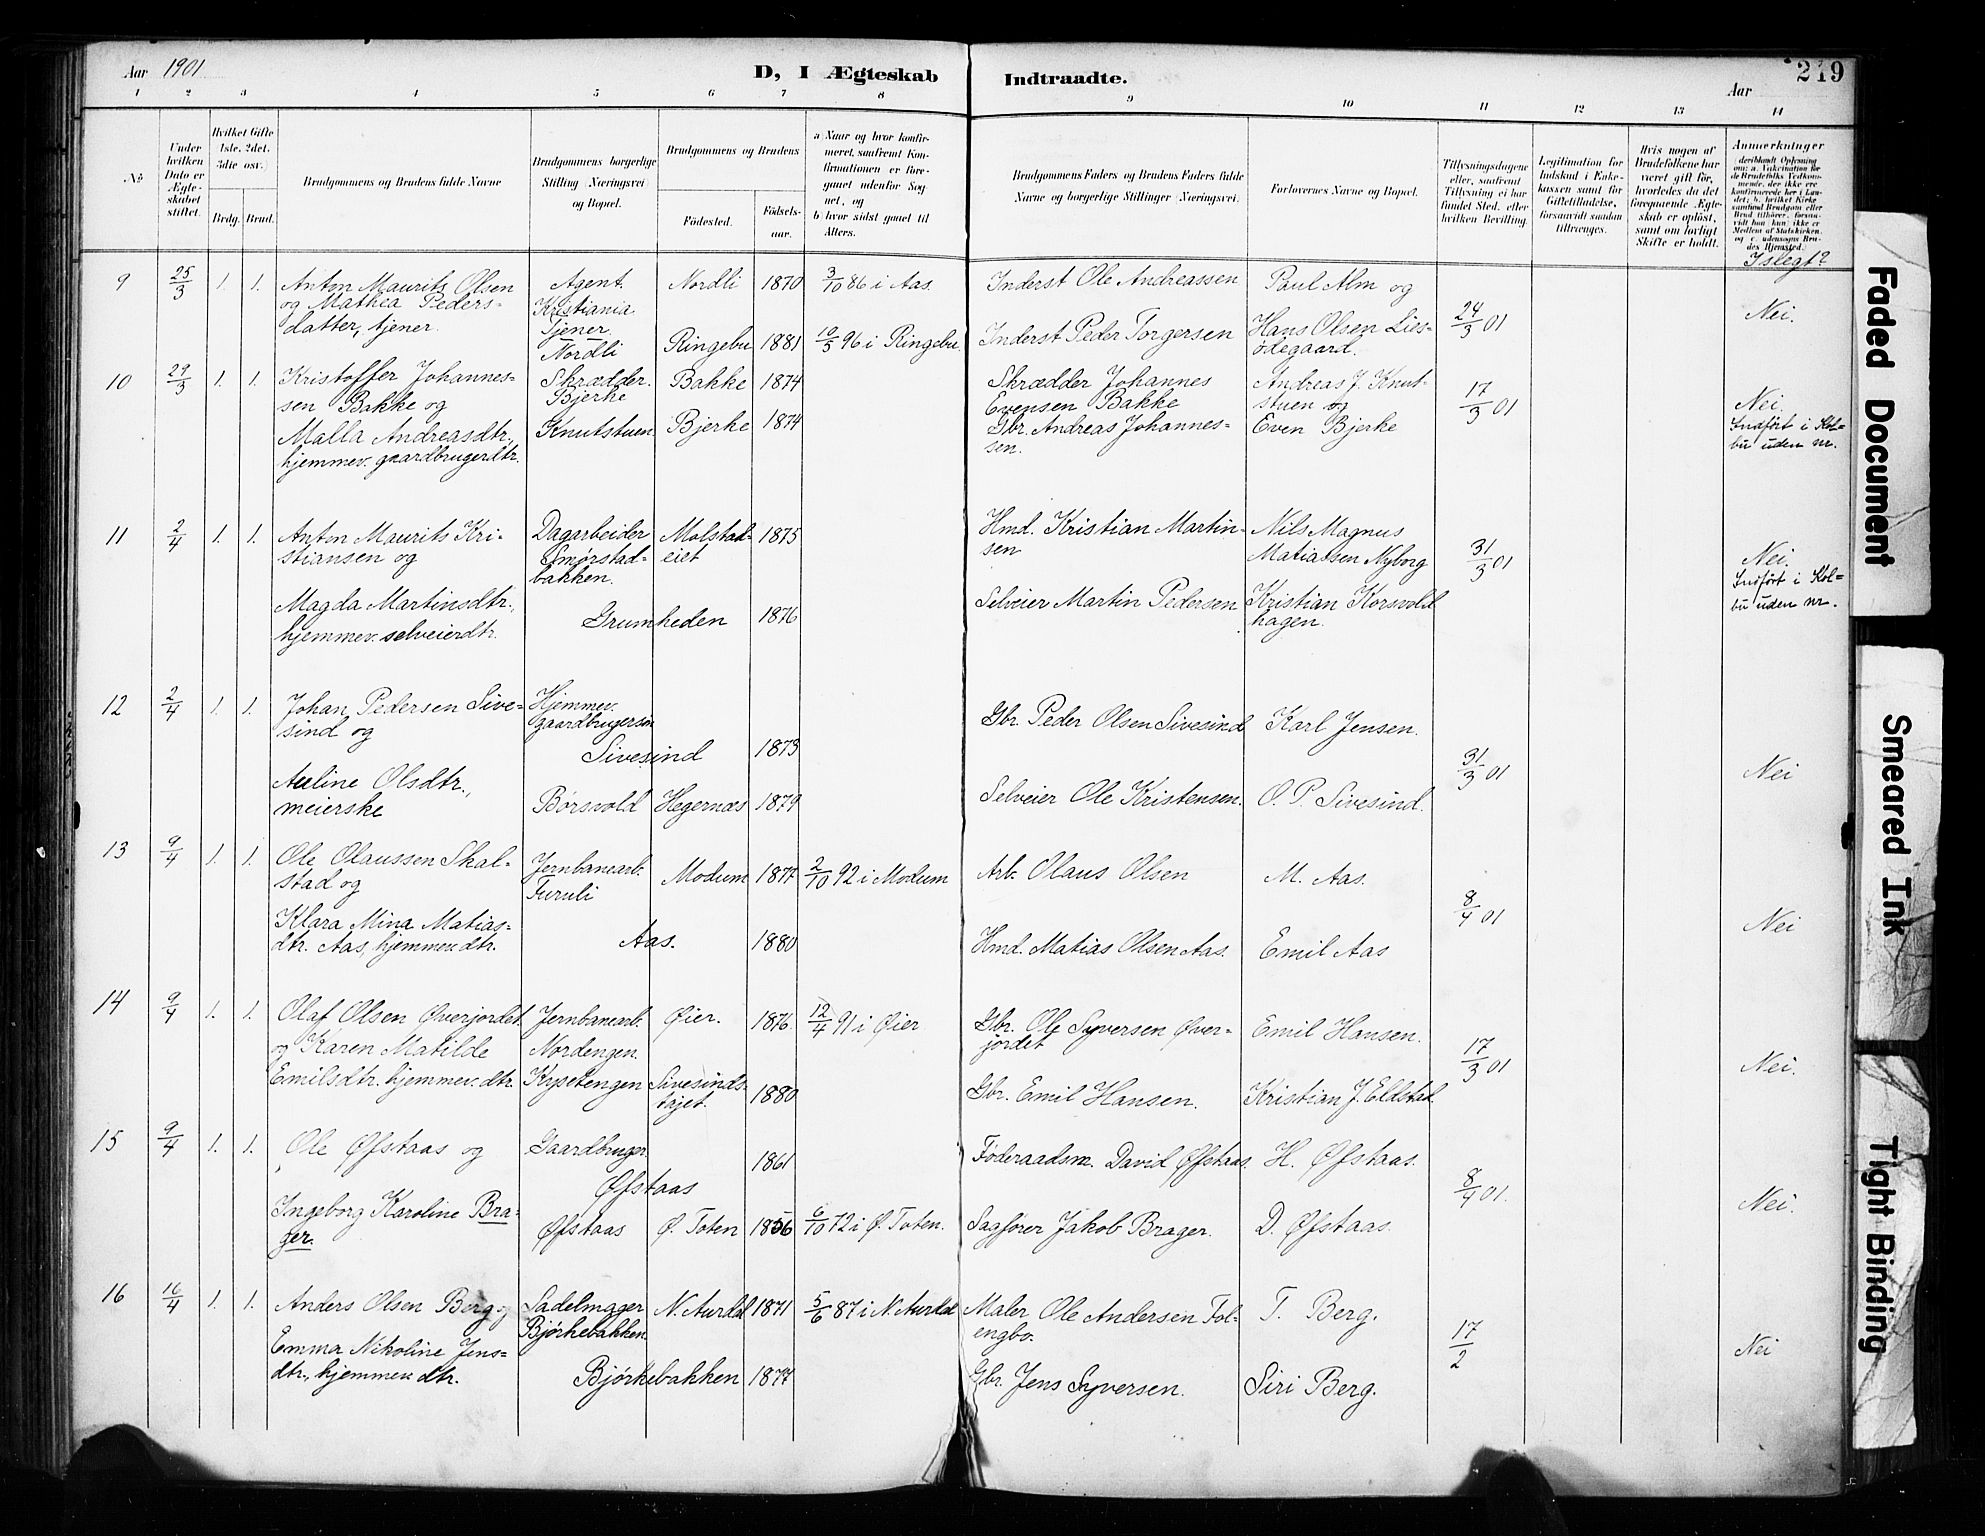 Aar 1901
D, I Ægteskab Indtraadte.
Aar 219
1 2 3 4 5 6 7 8 9 10 11 12 13 14
No
Under hvilken Dato er Ægteskabet stiftet.
Hvilket Gifte 1ste, 2det, 3die osv.)
Brdg. Brud.
Brudgommens og Brudens fulde Navne
Brudgommens borgerlige Stilling (Næringsvei) og Bopæl.
Brudgommens og Brudens
Fødested. Fødsels-aar.
a) Naar og hvor konfirmeret, saafremt Konfirmationen er foregaaet udenfor Sognet, og
b) hvor sidst gaaet til Alters.
Brudgommens Faders og Brudens Faders fulde Navne og borgerlige Stillinger (Næringsvei).
Forlovernes Navne og Bopæl.
Tillysningsdagene eller, saafremt Tillysning ei har fundet Sted, efter hvilken Bevilling.
Legitimation for Indskud i Enkekassen samt for Giftetilladelse, forsaavidt saadan tiltrænges.
Hvis nogen af Brudefolkene har været gift før, hvorledes da det foregaaende Ægteskab er opløst, samt om lovligt Skifte er holdt.
Anmerkninger
Islegt?
9 25/3 1. 1. Anton Maurits Olsen
og Mathea Peders-
datter, tjener.
Agent.
Kristiania
Tjener.
Nordli
Nordli 1870 3/10 86 i Aas.
Ringebu 1881 10/5 96 i Ringebu.
Inderst Ole Andreassen
Inderst Peder Torgersen
Paul Alm og
Hans Olsen Lies-
ødegaard.
24/3 01
Nei.
10 29/3 1. 1. Kristoffer Johannes-
sen Bakke og
Malla Andreasdtr.,
hjemmev. gaardbrugerdtr.
Skrædder.
Bjerke
Knutstuen
Bakke 1874
Bjerke 1874
Skrædder Johannes
Evensen Bakke
Gbr. Andreas Johannes-
sen.
Andreas J. Knut-
stuen og
Even Bjerke
17/3 01
Nei
Indført i Kol=
bu uden nr.
11 2/4 1. 1. Anton Maurits Kri-
stiansen og
Magda Martinsdtr.,
hjemmev. selveierdtr.
Dagarbeider
Smørstad-
bakken.
Molstad-
eiet 1875
Grumheden 1876
Hmd. Kristian Martin-
sen
Selveier Martin Pedersen
Nils Magnus
Matiassen Nyborg
Kristian Korsvold
hagen.
31/3 01
Nei.
Indført i Kol=
bu uden nr.
12 2/4 1. 1. Johan Pedersen Sive=
sind og
Auline Olsdtr.,
meierske
Hjemmev.
gaardbrugersøn
Sivesind 1873
Børsvold Hegernæs 1879
Gbr. Peder Olsen Sivesind
Selveier Ole Kristensen.
Karl Jensen.
O. P. Sivesind.
31/3 01
Nei
13 9/4 1. 1. Ole Olaussen Skal-
stad og
Klara Mina Matias-
dtr. Aas, hjemmev. dtr.
Jernbanearb.
Furuli
Modum 1877 2/10 92 i Modum
Aas. 1880
Arb. Olaus Olsen
Hmd. Matias Olsen Aas.
M. Aas.
Emil Aas
8/4 01
Nei
14 9/4 1. 1. Olaf Olsen Øverjordet
og Karen Matilde
Emilsdtr. hjemmev. dtr.
Jernbanearb.
Nordengen.
Krysetengen
Øier. 1876 12/4 91 i Øier
Sivesinds-
tajet. 1880
Gbr. Ole Syversen Øver-
jordet
Gbr. Emil Hansen.
Emil Hansen.
Kristian J. Eldstad
17/3 01
Nei.
15 9/4 1. 1. Ole Øfstaas og
Ingeborg Karoline Bra-
ger.
Gaardbruger
Øfstaas 1861
Øfstaas Ø. Toten 1856 6/10 72 i Ø. Toten.
Føderaadsm. David Øfstaas.
Sagfører Jakob Brager.
H. Øfstaas.
D. Øfstaas.
8/4 01.
Nei.
16 16/4 1. 1. Anders Olsen Berg og
Emma Nikoline Jens-
dtr., hjemmev. dtr.
Sadelmager
Bjørkebakken
N. Aurdal 1871 5/6 87 i N. Aurdal
Bjørkebakken 1877
Maler Ole Andersen Fol-
engbo.
Gbr. Jens Syversen.
T. Berg.
Siri Berg.
17/2
Nei
Faded Document
Smeared Ink
Tight Binding